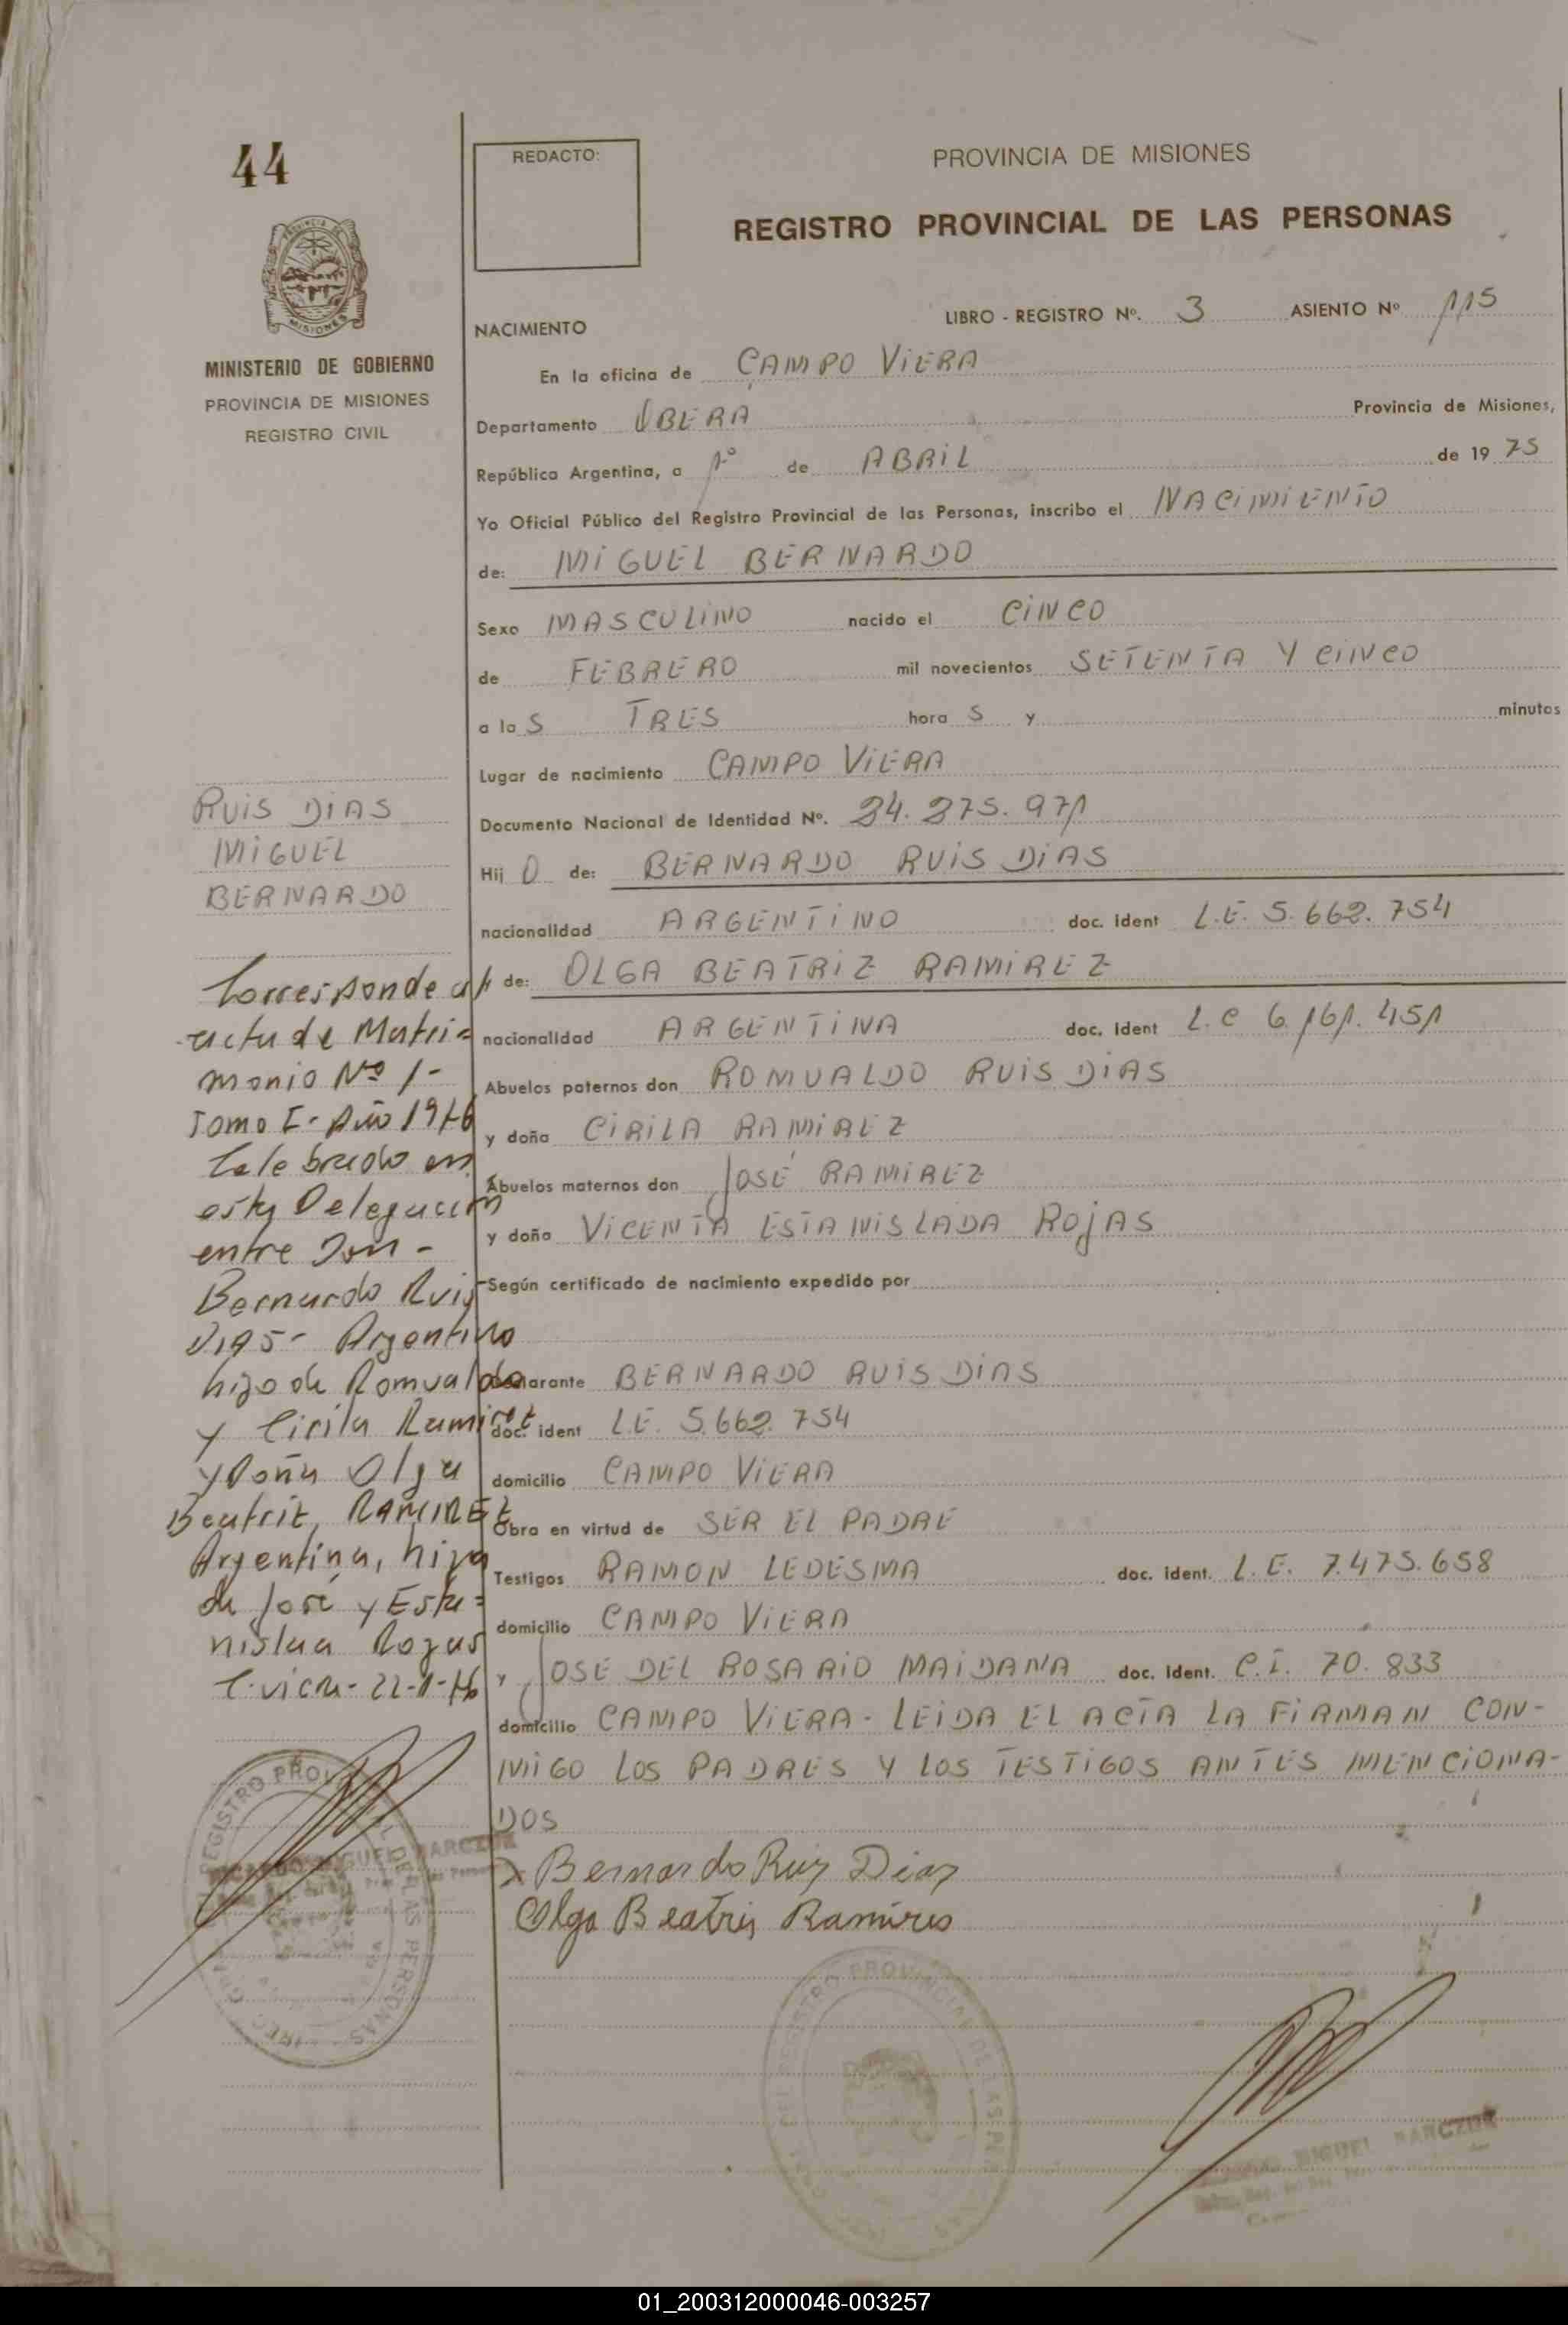 44
REDACTO:
PROVINCIA DE MISIONES
REGISTRO PROVINCIAL DE LAS PERSONAS
MISIONES
MINISTERIO DE GOBIERNO
PROVINCIA DE MISIONES
REGISTRO CIVIL
NACIMIENTO
LIBRO - REGISTRO Nº. 3 ASIENTO Nº 115
En la oficina de CAMPO VIERA
Departamento OBERA Provincia de Misiones,
República Argentina, a 1º de ABRIL de 1975
Yo Oficial Público del Registro Provincial de las Personas, inscribo el NACIMIENTO
de: MIGUEL BERNARDO
Sexo MASCULINO nacido el CINCO
de FEBRERO mil novecientos SETENTA Y CINCO
a las TRES horas y minutos
Lugar de nacimiento CAMPO VIERA
Documento Nacional de Identidad Nº. 24.275.971
Hijo de: BERNARDO RUIS DIAS
nacionalidad ARGENTINO doc. ident L.E. 5.662.754
de: OLGA BEATRIZ RAMIREZ
nacionalidad ARGENTINA doc. ident L.C 6.161.451
Abuelos paternos don ROMUALDO RUIS DIAS
y doña CIRILA RAMIREZ
Abuelos maternos don JOSÉ RAMIREZ
y doña VICENTA ESTANISLADA ROJAS
Según certificado de nacimiento expedido por
BERNARDO RUIS DIAS
doc. ident L.E. 5.662.754
domicilio CAMPO VIERA
Obra en virtud de SER EL PADRE
Testigos RAMON LEDESMA doc. ident. L.E. 7.475.658
domicilio CAMPO VIERA
y JOSE DEL ROSARIO MAIDANA doc. ident. C.I. 70.833
domicilio CAMPO VIERA - LEIDA EL ACTA LA FIRMAN CON-
MIGO LOS PADRES Y LOS TESTIGOS ANTES MENCIONA-
DOS
X Bernardo Ruiz Diaz
Olga Beatris Ramires
RUIS DIAS
MIGUEL
BERNARDO
Corresponde al
acta de Matri=
monio Nº 1-
Tomo I- Año 1976
Celebrado en
esta Delegación
entre Don -
Bernardo Ruis
Dias- Argentino
hijo de Romualdo
y Cirila Ramirez
y Doña Olga
Beatriz RAMIREZ
Argentina, hija
de José y Esta=
nislaa Rojas
C. viera - 22-1-76
REGISTRO PROVINCIAL DE LAS PERSONAS
MIGUEL
REGISTRO PROVINCIAL DE LAS PERSONAS
MIGUEL
01_200312000046-003257